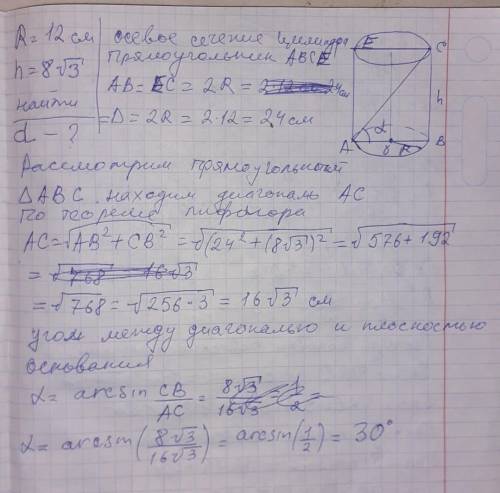 R = 12 см
h = 8√3
найти
d - ?
осевое сечение цилиндра
прямоугольник ABCE
AB = EC = 2R =
= D = 2R = 2·12 = 24 см
E C
h
A α O R B
Рассмотрим прямоугольный
△ABC находим диагональ AC
По теореме пифагора
AC = √(AB² + CB²) = √(24² + (8√3)²) = √(576 + 192)
= √768 = 16√3
= √768 = √(256·3) = 16√3 см
угол между диагональю и плоскостью
основания
α = arcsin CB/AC = 8√3/16√3 = 1/2 =
α = arcsin(8√3/16√3) = arcsin(1/2) = 30°